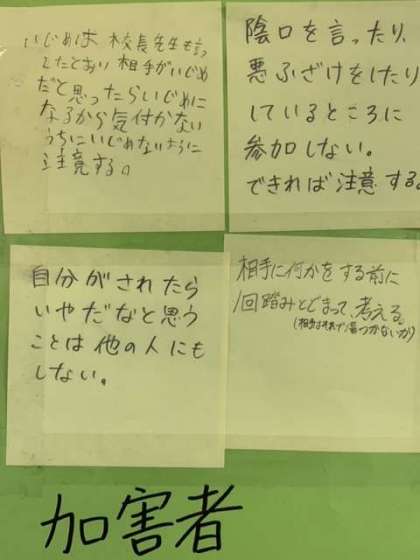 いじめは 校長先生も言っ
したとおい 相手がいじめ
だと思ったらいじめに
なるから気付かない
うちにいじめないように
注意する。
陰口を言ったり、
悪ふざけをしたり
しているところに
参加しない。
できれば注意する。
自分がされたら
いやだなと思う
ことは他の人にも
しない。
相手に何かをする前に
1回踏みとどまって、考える。
(相手はそれで傷つかないか)
加害者